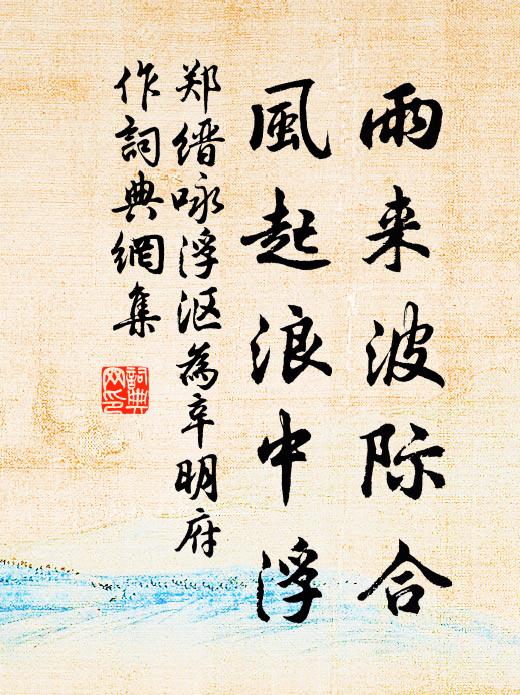 雨来波际合
風起浪中浮
郑缙咏浮沤為辛明府
作詞典網集
詞典
网印